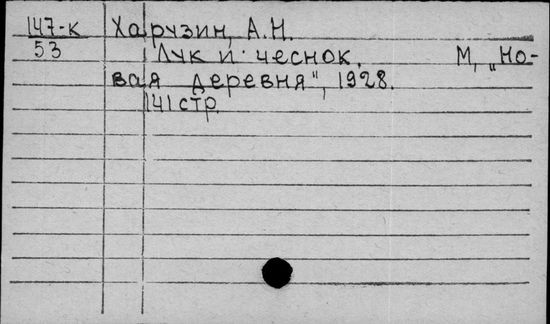 147-к Харузин, А.Н.
53 Лук и чеснок. М, „Но-
вая деревня", 1928.
141 стр.